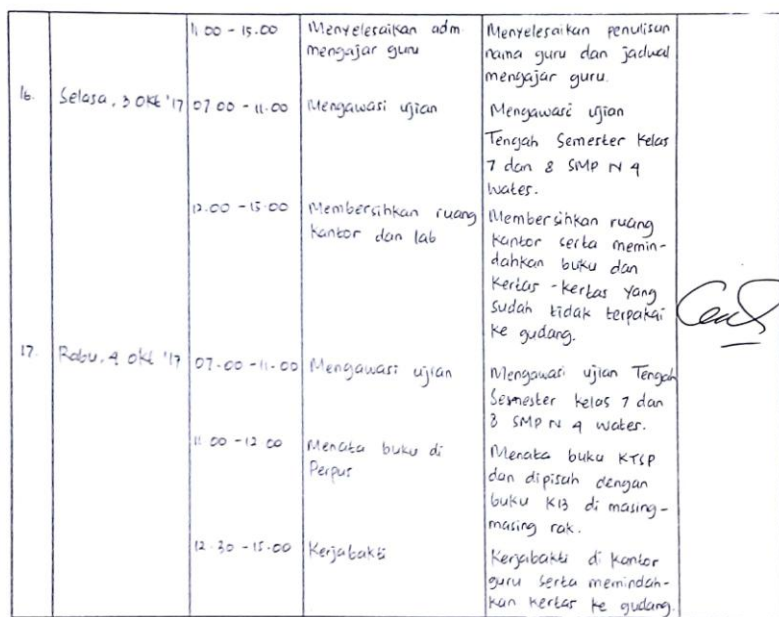 11.00 - 15.00
Menyelesaikan adm.
mengajar guru
Menyelesaikan penulisan
nama guru dan jadwal
mengajar guru.
16.
Selasa, 3 Okt '17
07.00 - 11.00
Mengawasi ujian
Mengawasi ujian
Tengah Semester kelas
7 dan 8 SMP N 4
Wates.
12.00 - 15.00
Membersihkan ruang
kantor dan lab
Membersihkan ruang
kantor serta memin-
dahkan buku dan
kertas - kertas yang
sudah tidak terpakai
ke gudang.
17.
Rabu, 4 Okt '17
07.00 - 11.00
Mengawasi ujian
Mengawasi ujian Tengah
Semester kelas 7 dan
8 SMP N 4 Wates.
11.00 - 12.00
Menata buku di
Perpus
Menata buku KTSP
dan dipisah dengan
buku K13 di masing-
masing rak.
12.30 - 15.00
Kerjabakti
Kerjabakti di kantor
guru serta memindah-
kan kertas ke gudang.